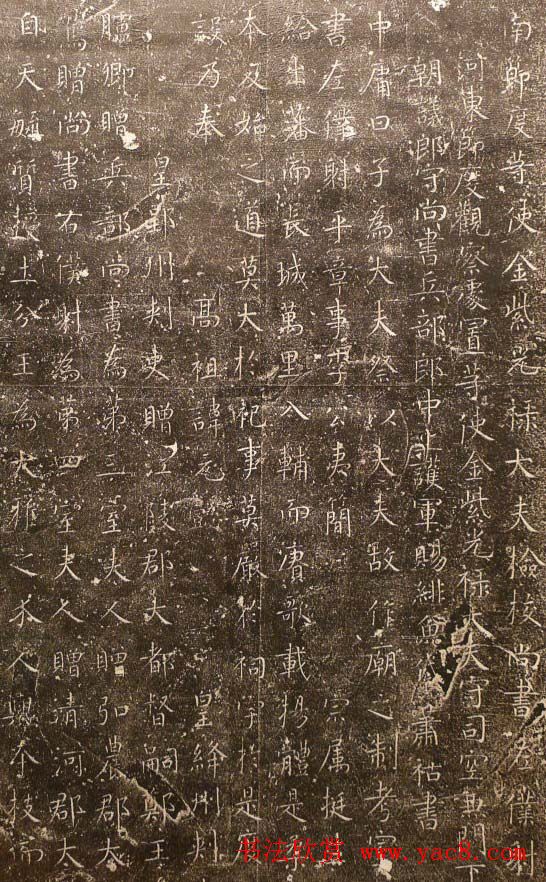 南節度等使金紫光祿大夫檢校尚書左僕射
河東節度觀察處置等使金紫光祿大夫守司空兼門下
朝議郎守尚書兵部郎中上護軍賜緋魚袋蕭祐書
中庸曰子為大夫祭以大夫故作廟之制考
書左僕射平章事李公夷簡 宗属挺
給出蕃而長城萬里入輔而賡歌載揚體是
本及始之道莫大於祀事莫嚴於祠宇於是
設乃奉 高祖諱元懿 皇絳州刺
皇鄂州刺史贈江陵郡大都督嗣鄭王
臚卿贈兵部尚書為第三室夫人贈弘農郡太
為贈尚書右僕射為第四室夫人贈清河郡太
自天 質 土 王為大雅之 人 本枝而
书法欣赏 www.yac8.com